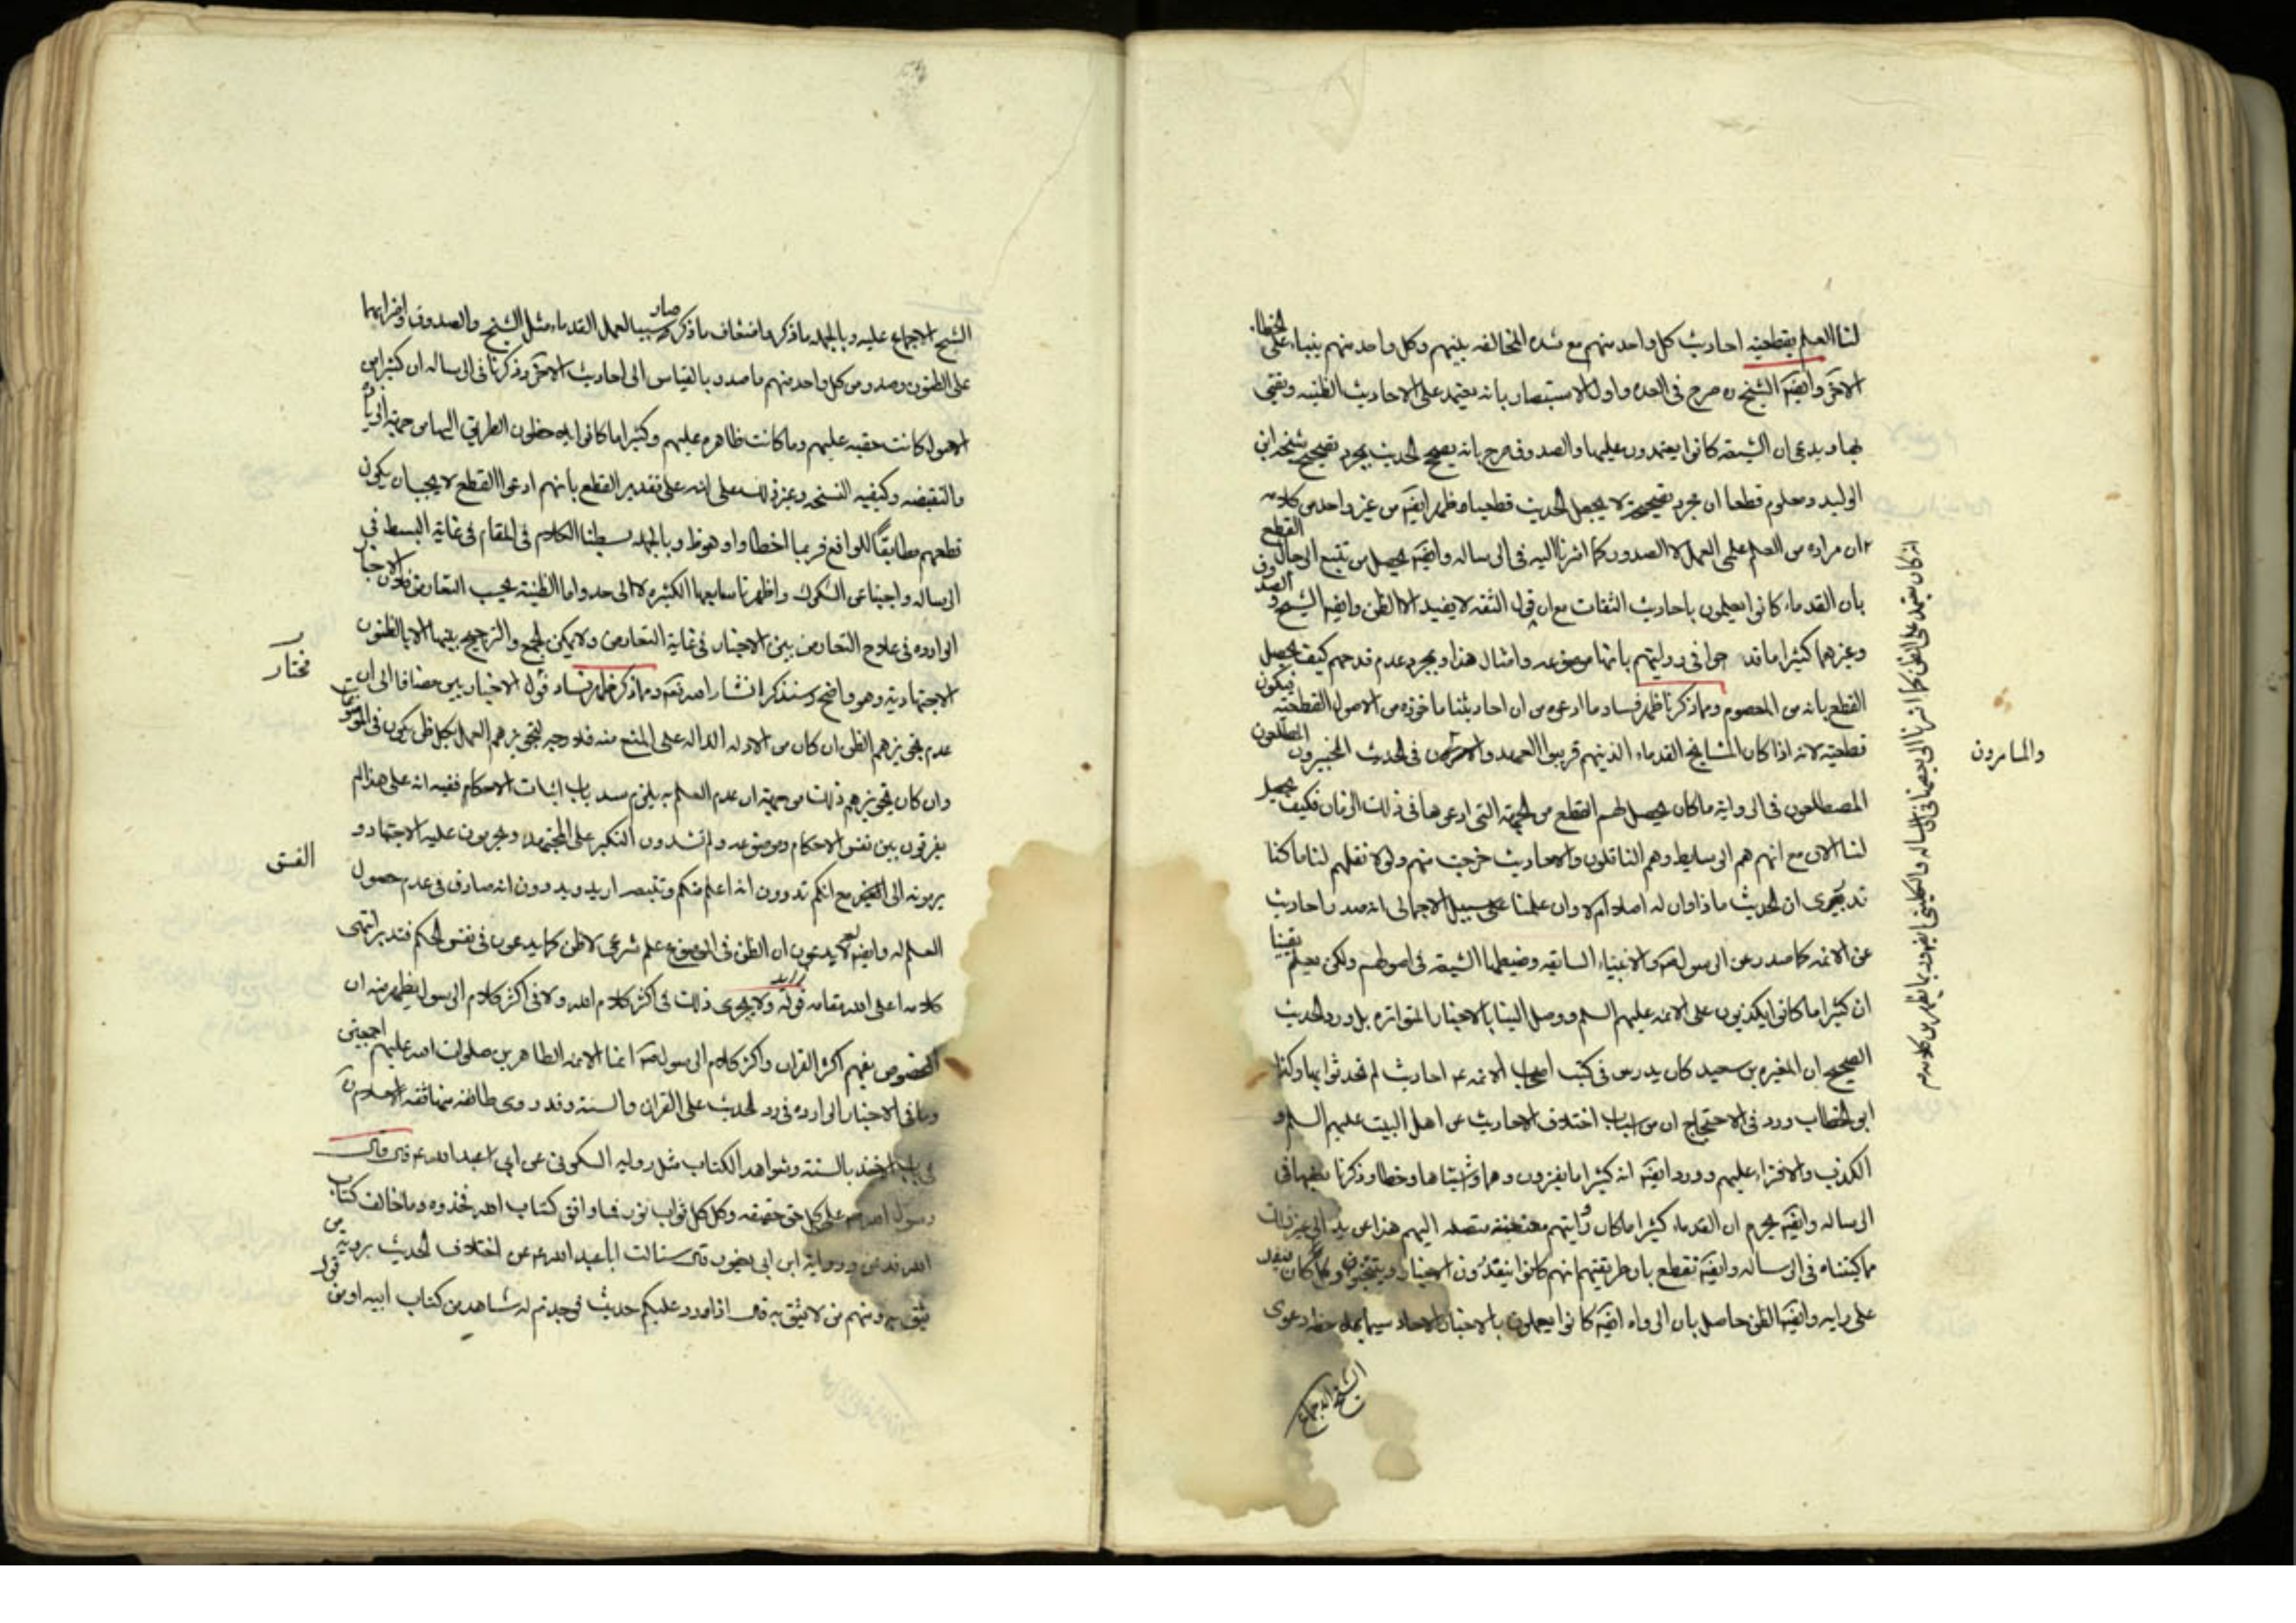 لنا العلم بقطعية احاديث كل واحد منهم مع شدة المخالفه بينهم وكل واحد منهم بناء على الخطاء
الاخر وايضا الشيخ ره صرح فى العده واول الاستبصار بانه يعتمد على الاحاديث الظنيه ويفتى
بها ويدعى ان الشيعه كانوا يعتمدون عليها والصدوق صرح بانه يصحح الحديث بمجرد تصحيح شيخه ابن
الوليد ومعلوم قطعا ان مجرد تصحيحه لا يجعل الحديث قطعيا وظهر ايضا من غير واحد من كلامه
ان مراده من العلم على العمل لا الصدور كما اشرنا اليه فى الرساله وايضا يحصل من تتبع الرجال القطع
بان القدماء كانوا يعملون باحاديث الثقات مع ان قول الثقه لا يفيد الا الظن وايضا الشيخ والصدوق
وغيرهما كثيرا ما قد حوا فى روايتهم بانها موضوعه وامثال هذا وبمجرد عدم قدحهم كيف يحصل
القطع بانه من المعصوم ومما ذكرنا ظهر فساد ما ادعوه من ان احاديثنا ماخوذه من الاصول القطعيه فيكون
قطعيه لانه اذا كان المشايخ القدماء الذين هم قريبوا العهد فى الحديث الخبيرون المطلعون
المضطلعون فى الروايه ما كان يحصل لهم القطع من الجهة التى ادعوها فى ذلك الزمان فكيف يحصل
لنا الان مع انهم هم الوسايط وهم الناقلون والاحاديث خرجت منهم ولولا نقلهم لنا ما كنا
ندرى ان الحديث ماذا وان له اصلا ام لا وان علمنا على سبيل الاجمال انه صدر احاديث
عن الائمه كما صدر عن الرسول والانبياء السابقه وضبطها الشيعه فى اصولهم ولكن نعلم يقينا
ان كثيرا ما كانوا يكذبون على الائمه عليهم السلم ووصل الينا بالاخبار المتواتره بل ورد الحديث
الصحيح ان المغيره بن سعيد كان يدس فى كتب اصحاب الائمه ع احاديث لم يحدثوا بها وكذا
ابو الخطاب وورد فى الاحتجاج ان من اسباب اختلاف الاحاديث عن اهل البيت عليهم السلم و
الكذب والافتراء عليهم وورد ايضا انه كثيرا ما يغيرون وهما واشتباها وخطا وذكرنا بعضها فى
الرساله وايضا نجزم ان القدماء كثيرا ما كان متصله اليهم الى غير ذلك
مما كتبناه فى الرساله وايضا نقطع بان طريقتهم انهم كانوا ينتقدون الاخبار
على رايه وايضا الظن حاصل بان الرواه ايضا كانوا يعملون بالاخبار الاحاد سيما دعوى
الشيخ الاجماع
انه كان يعتمد على الظن كما اشرنا الى بعضها فى الرساله والكلينى ايضا
والماهرون
الشيخ الاجماع عليه وبالجمله ما ذكر واضعاف ما ذكر صار سببا لعمل القدماء مثل الشيخ والصدوق واضرابهما
على الظنون وصدور من كل واحد منهم ما صدر بالقياس الى احاديث الاخر وذكرنا فى الرساله ان كثيرا من
الاصول كانت خفيه عليهم وما كانت ظاهره عليهم وكثيرا ما كانوا يلاحظون الطريق اليها من جهة الزيادة
والنقيصه وكيفيه النسخه وغير ذلك على انه على تقدير القطع بانهم ادعوا القطع لا يجب ان يكون
قطعهم مطابقا للواقع فربما اخطاوا وبالجمله بسطنا الكلام فى المقام فى غاية البسط فى
الرساله واجبنا عن الشكوك واظهرنا شنايعها الكثيره لا الى حد واما الظنية بحسب التعارض فلان الاخبار
الوارده فى علاج التعارض بين الاخبار فى غاية التعارض ولا يمكن الجمع والترجيح بينها الا بالظنون
الاجتهادية وهو واضح وسنذكر انشاء الله تعالى ومما ذكر ظهر فساد قول الاخباريين مضافا الى ان
عدم تجويزهم الظن ان كان من الادله الداله على المنع منه فلا وجه لتجويزهم العمل بكل ظن يكون فى الموضوعات
وان كان تجويزهم ذلك من جهة ان عدم العلم به يلزم سد باب اثبات الاحكام ففيه انه على هذا لم
يفرقون بين نفس الاحكام وموضوعه ولم تشددون النكير على المجتهد وتحرمون عليه الاجتهاد و
يرمونه الى مع انكم تدرون انه اعلم منكم وتدرون انه صادق فى عدم حصول
العلم له وايضا لا يدعون ان الظن فى الموضوع علم شرعى لا ظن كما يدعون فى نفس الحكم فتدبر انتهى
كلامه اعلى الله مقامه قوله ولا يجرى ذلك فى اكثر كلام الله ولا فى اكثر كلام الرسول يظهر منه ان
المخصوص بفهم اكثر القران واكثر كلام الرسول انما الائمه الطاهرين صلوات الله عليهم اجمعين
وينافى الاخبار الوارده فى رد الحديث على القران والسنة وقد روى طائفه منها ثقه الاسلام
فى باب الاخذ بالسنة وشواهد الكتاب مثل روايه السكونى عن ابى عبد الله ع قال قال
رسول الله ص على كل حق حقيقه وكل كل ثواب نور فما وافق كتاب الله فخذوه وما خالف كتاب
الله فدعوه ورواية ابن ابى يعفور قال سئالت ابا عبد الله ع عن اختلاف الحديث يرويه من
نثق به ومنهم من لا نثق به قال اذا ورد عليكم حديث فوجدتم له شاهد من كتاب الله او من قول
مختار
الفسق